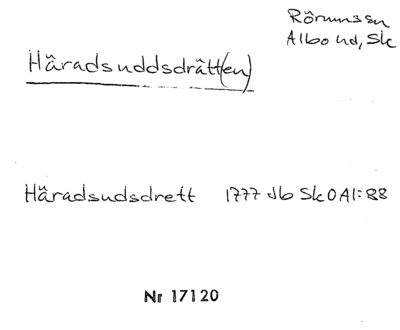 Rörums sn
Albo hd, Sk
Häradsuddsdrätt(en)
Häradsudsdrett 1777 Jb Sk O Al:88
Nr 17120